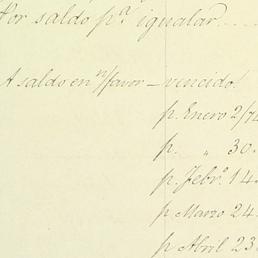 Por saldo pª igualar....
A saldo en n/favor — vencido.
p. Enero 2/74
p. " 30.
p. Febrº. 14.
p Marzo 24.
p Abril 23.